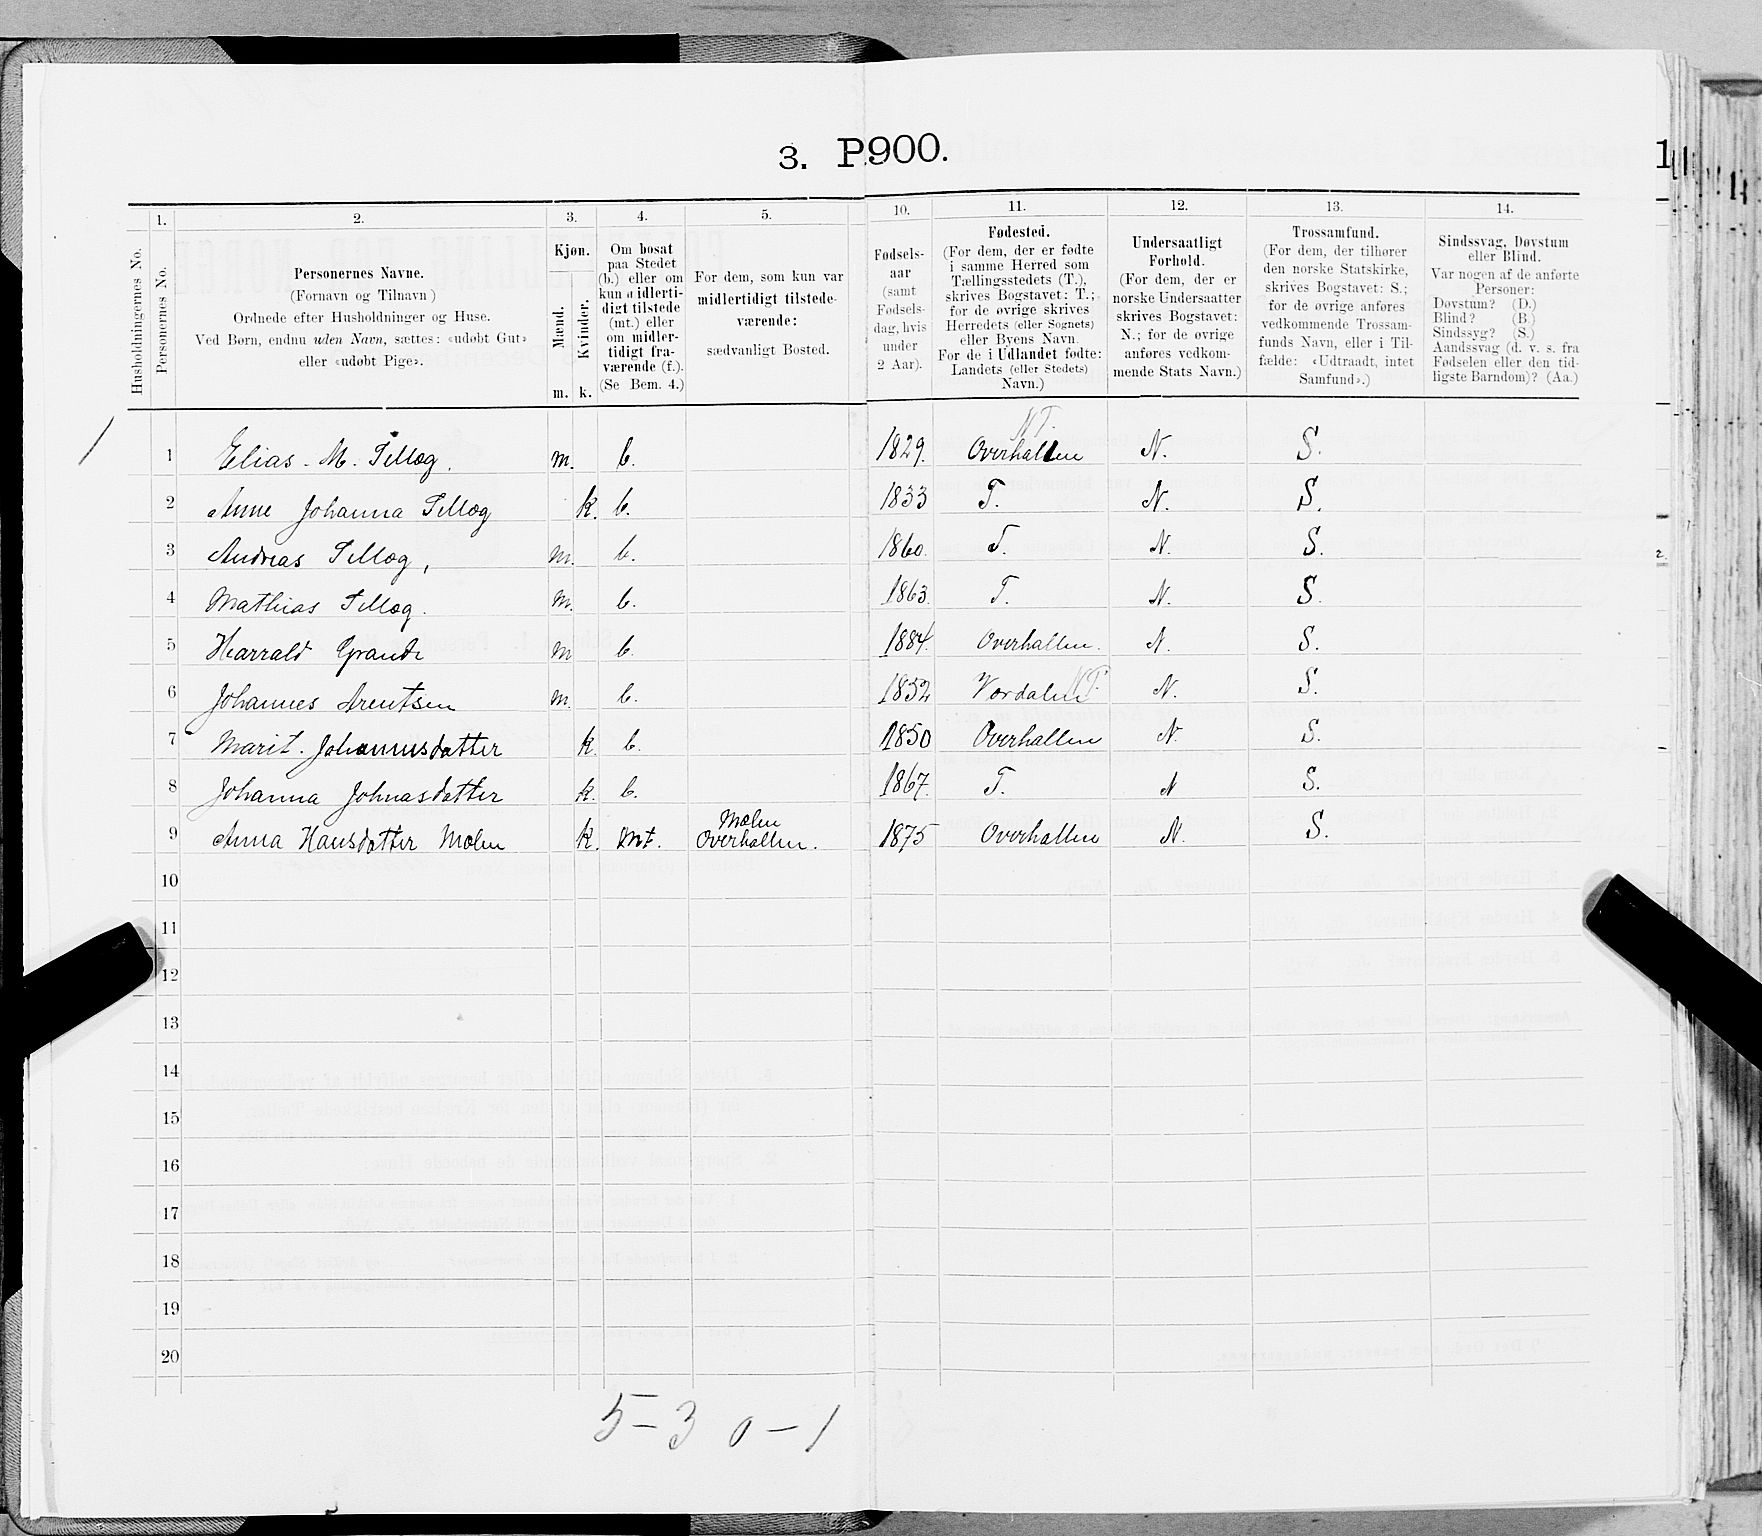 3. P.900.
1
1.
2.
3.
4.
5.
10.
11.
12.
13.
14.
Husholdningernes No.
Personernes No.
Personernes Navne.
(Fornavn og Tilnavn)
Ordnede efter Husholdninger og Huse.
Ved Børn, endnu uden Navn, sættes: «udøbt Gut»
eller «udøbt Pige».
Kjøn.
Mænd.
Kvinder.
m. k.
Om bosat
paa Stedet
(b.) eller om
kun midlerti-
digt tilstede
(mt.) eller
om midler-
tidigt fra-
værende (f.).
(Se Bem. 4.)
For dem, som kun var
midlertidigt tilstede-
værende:
sædvanligt Bosted.
Fødsels-
aar
(samt
Fødsels-
dag, hvis
under
2 Aar).
Fødested.
(For dem, der er fødte
i samme Herred som
Tællingsstedets (T.),
skrives Bogstavet: T.;
for de øvrige skrives
Herredets (eller Sognets)
eller Byens Navn.
For de i Udlandet fødte:
Landets (eller Stedets)
Navn.)
Undersaatligt
Forhold.
(For dem, der er
norske Undersaatter
skrives Bogstavet:
N.; for de øvrige
anføres vedkom-
mende Stats Navn.)
Trossamfund.
(For dem, der tilhører
den norske Statskirke,
skrives Bogstavet: S.;
for de øvrige anføres
vedkommende Trossam-
funds Navn, eller i Til-
fælde: «Udtraadt, intet
Samfund».)
Sindssvag, Døvstum
eller Blind.
Var nogen af de anførte
Personer:
Døvstum? (D.)
Blind? (B.)
Sindssyg? (S.)
Aandssvag (d. v. s. fra
Fødselen eller den tid-
ligste Barndom)? (Aa.)
NT.
1 Elias. M. Sellæg. m. b. 1829. Overhallen N. S.
2 Anne Johanna Sellæg k. b. 1833 T. N. S.
3 Andreas Sellæg, m. b. 1860. T. N. S.
4 Mathias Sellæg. m. b. 1863. T. N. S.
5 Harrald Grande m b. 1884. Overhallen. N. S.
6 Johannes Arentsen m. b. 1832 Værdalen NT. N. S.
7 Marit. Johannesdatter k. b. 1850 Overhallen N. S.
8 Johanna Johnasdatter k. b. 1867. T. N S.
Mælen
9 Anna Hansdatter Mælen k. mt. Overhallen. 1875 Overhallen N. S.
10
11
12
13
14
15
16
17
18
19
20
5-3 0-1